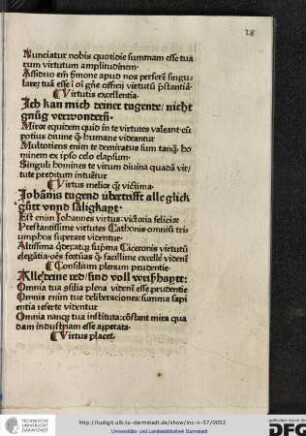 28
Nunciatur nobis quotidie summam esse tua
rum virtutum amplitudinem
Assiduo em̄ s̄mone apud nos perfert̄ singu
larē tuā esse ī oī gn̄e officij virtutū p̄stantiā
Virtutis excellentia
Ich kan mich deiner tugente/ nicht
gnůg verwondern̄
Miror equidem quid in te virtutes valeant: est
potius diuine q̄ humane videantur
Multotiens enim te demiratus sum tanq̄ ho
minem ex ipso celo elapsum
Singuli homines te virum diuina quadā vir/
tute preditum intuētur
Virtus melior q̄ victima
Johānis tugend übertrifft alle glick
gůtt vnnd säligkaytt
Est enim Johannes virtus: victoria felicior
Prestantissime virtutes Cathonis omniū tri
umphos superare videntur
Altissima qdē atq̄ sup̄ma Ciceronis virtutū
elegātia oēs fortūas q̄ facillime excelle videnī
Consilium plenum prudentie
Alle deine red/ sind voll weyßhaytt:
Omnia tua cōsilia plena videnī esse prudentie
Omnis enim tue deliberationes summa sapi
entia referte videntur
Omnia nancq̄ tua instituta: cōstant mira qua
dam industriam esse asperata
Virtus placet
http://tudigit.ulb.tu-darmstadt.de/show/inc-ii-57/0053
Universitäts- und Landesbibliothek Darmstadt
TECHNISCHE
UNIVERSITÄT
DARMSTADT
DFG